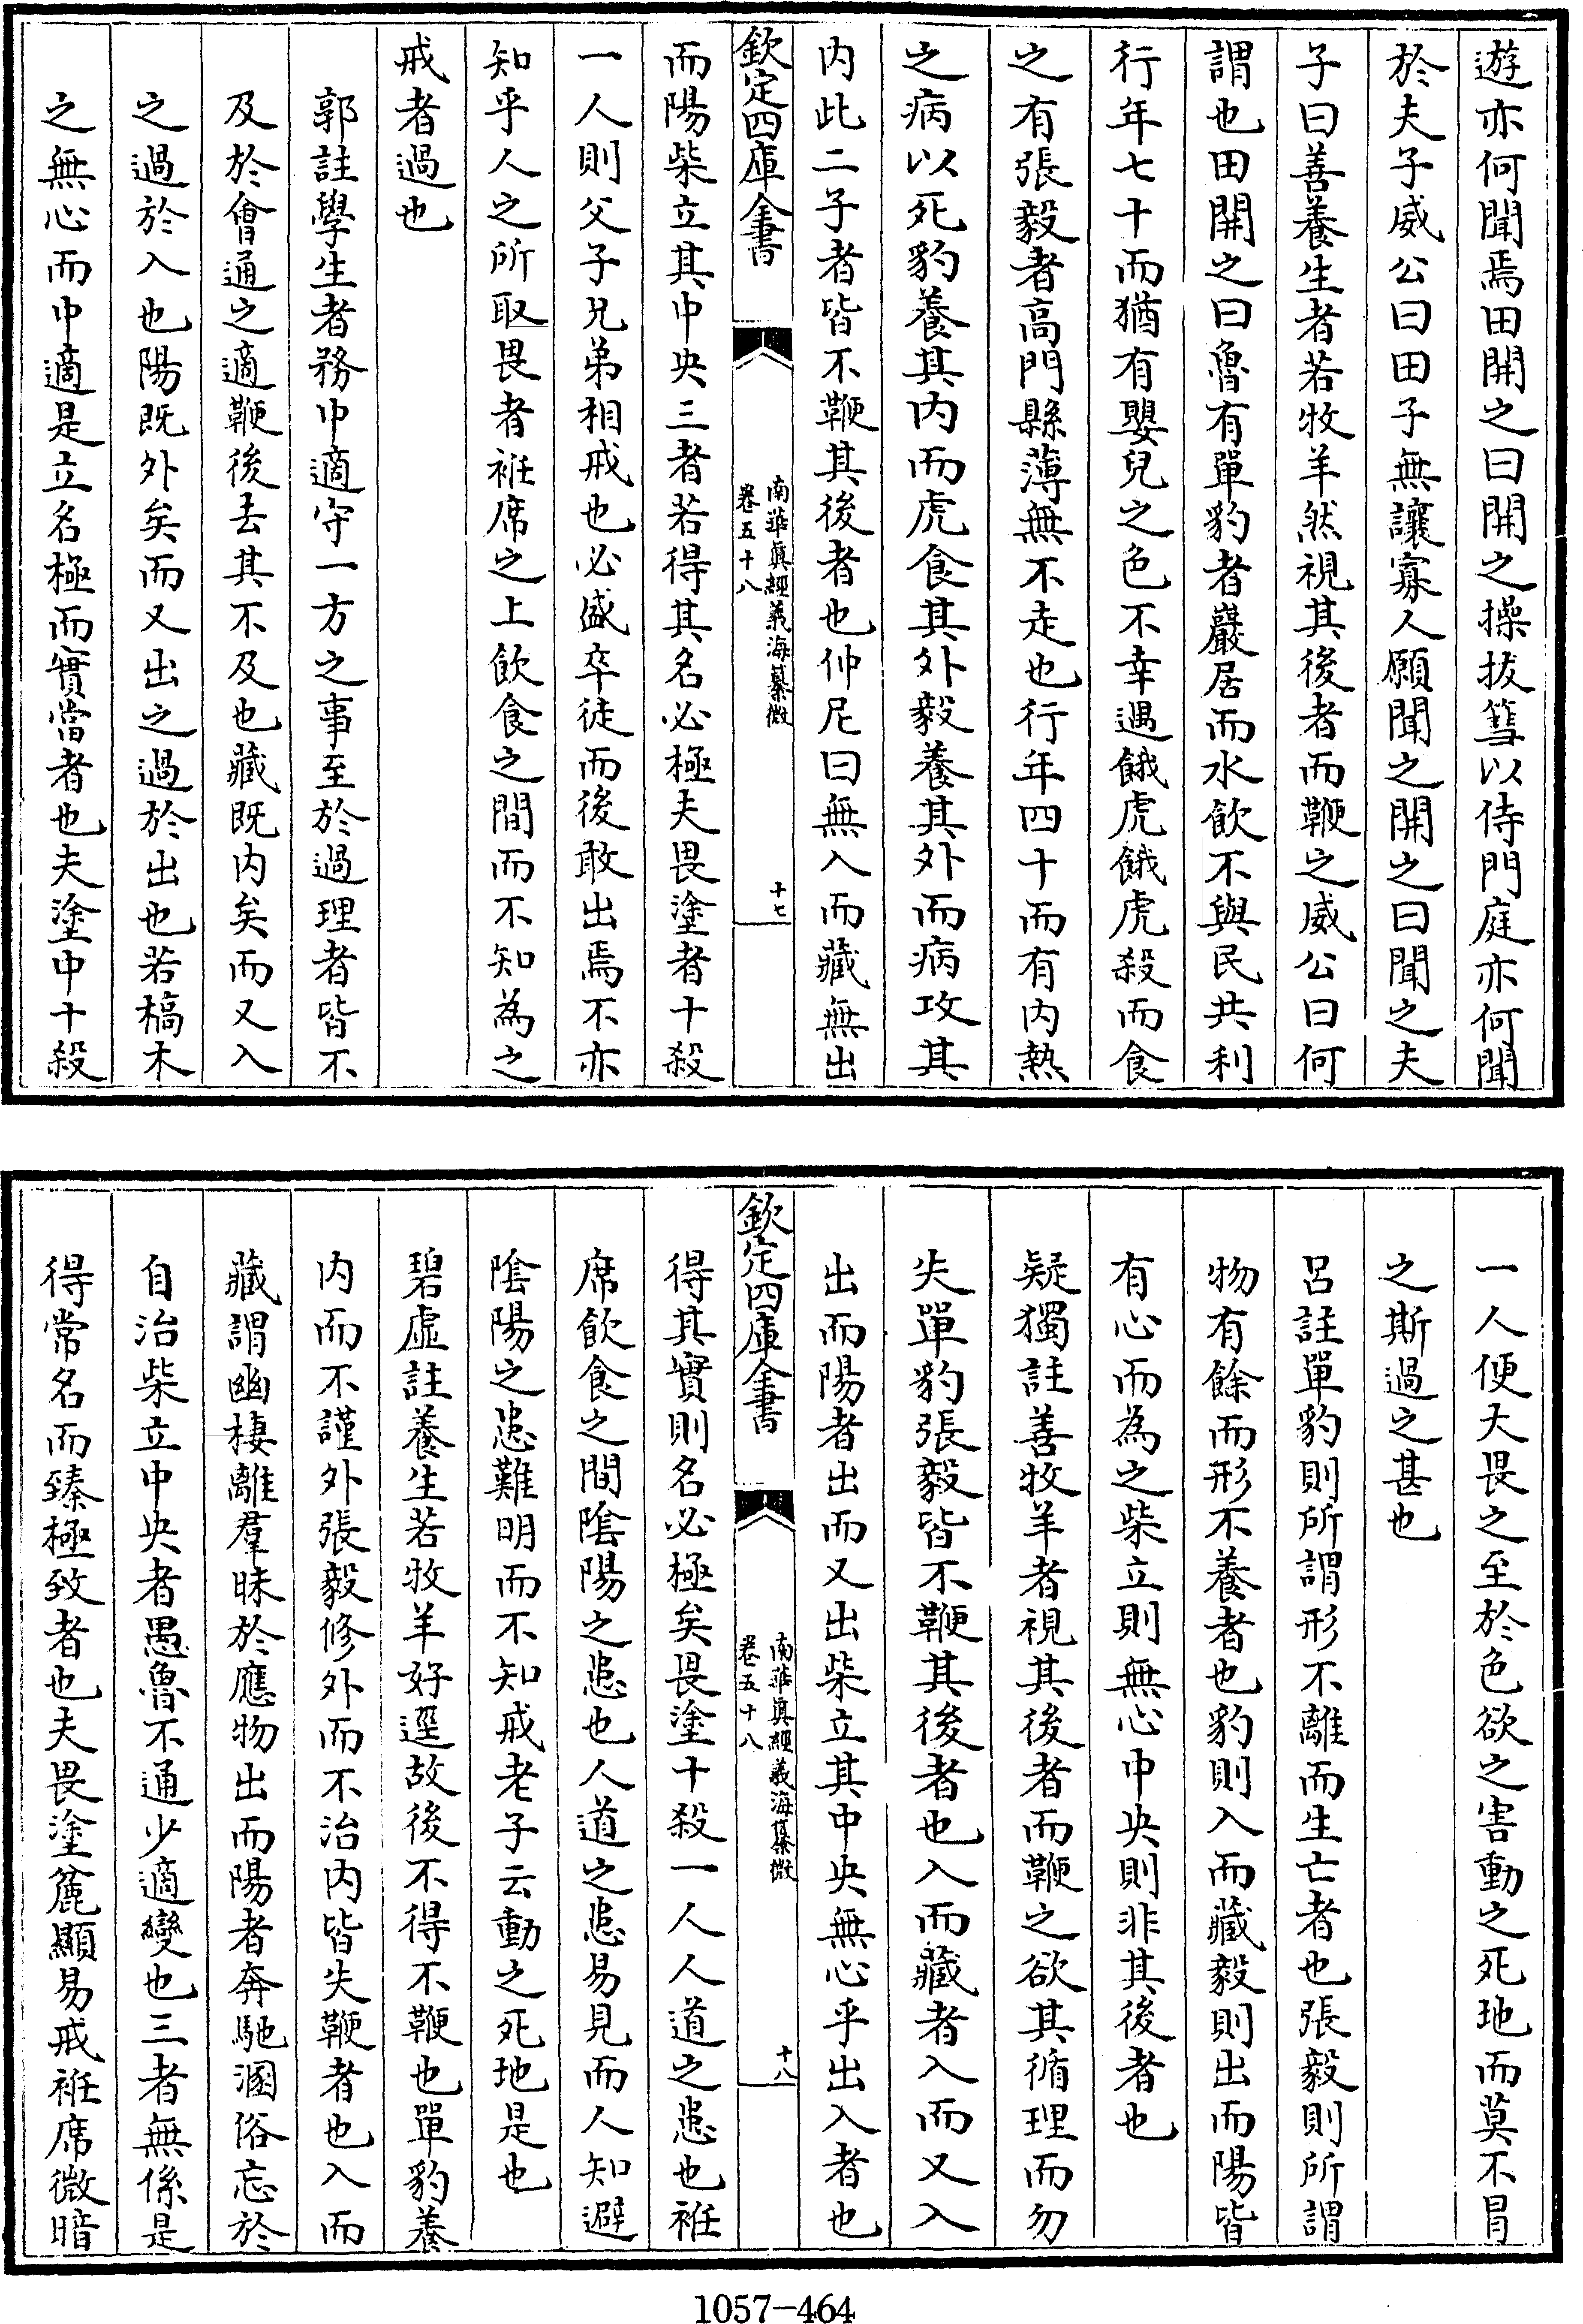 遊亦何聞焉田開之曰開之操拔篲以侍門庭亦何聞
於夫子威公曰田子無讓寡人願聞之開之曰聞之夫
子曰善養生者若牧羊然視其後者而鞭之威公曰何
謂也田開之曰魯有單豹者巖居而水飲不與民共利
行年七十而猶有嬰兒之色不幸遇餓虎餓虎殺而食
之有張毅者高門縣薄無不走也行年四十而有内熱
之病以死豹養其内而虎食其外毅養其外而病攻其
内此二子者皆不鞭其後者也仲尼曰無入而藏無出
欽定四庫全書
南華真經義海纂微
卷五十八
十七
而陽柴立其中央三者若得其名必極夫畏塗者十殺
一人則父子兄弟相戒也必盛卒徒而後敢出焉不亦
知乎人之所取畏者袵席之上飲食之間而不知為之
戒者過也
郭註學生者務中適守一方之事至於過理者皆不
及於會通之適鞭後去其不及也藏既内矣而又入
之過於入也陽既外矣而又出之過於出也若槁木
之無心而中適是立名極而實當者也夫塗中十殺
一人便大畏之至於色欲之害動之死地而莫不冒
之斯過之甚也
呂註單豹則所謂形不離而生亡者也張毅則所謂
物有餘而形不養者也豹則入而藏毅則出而陽皆
有心而為之柴立則無心中央則非其後者也
疑獨註善牧羊者視其後者而鞭之欲其循理而勿
失單豹張毅皆不鞭其後者也入而藏者入而又入
出而陽者出而又出柴立其中央無心乎出入者也
欽定四庫全書
南華真經義海纂微
卷五十八
十八
得其實則名必極矣畏塗十殺一人人道之患也袵
席飲食之間陰陽之患也人道之患易見而人知避
陰陽之患難明而不知戒老子云動之死地是也
碧虛註養生若牧羊好逕故後不得不鞭也單豹養
内而不謹外張毅修外而不治内皆失鞭者也入而
藏謂幽棲離羣昧於應物出而陽者奔馳溷俗忘於
自治柴立中央者愚魯不通少適變也三者無係是
得常名而臻極致者也夫畏塗麄顯易戒袵席微暗
1057-464